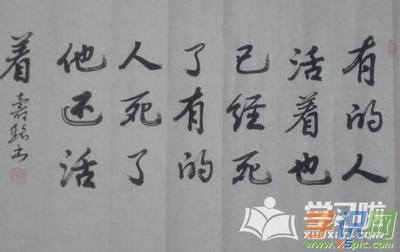 有的人
活着也
已经死
了有的
人死了
他还活
着
学习啦
学识网